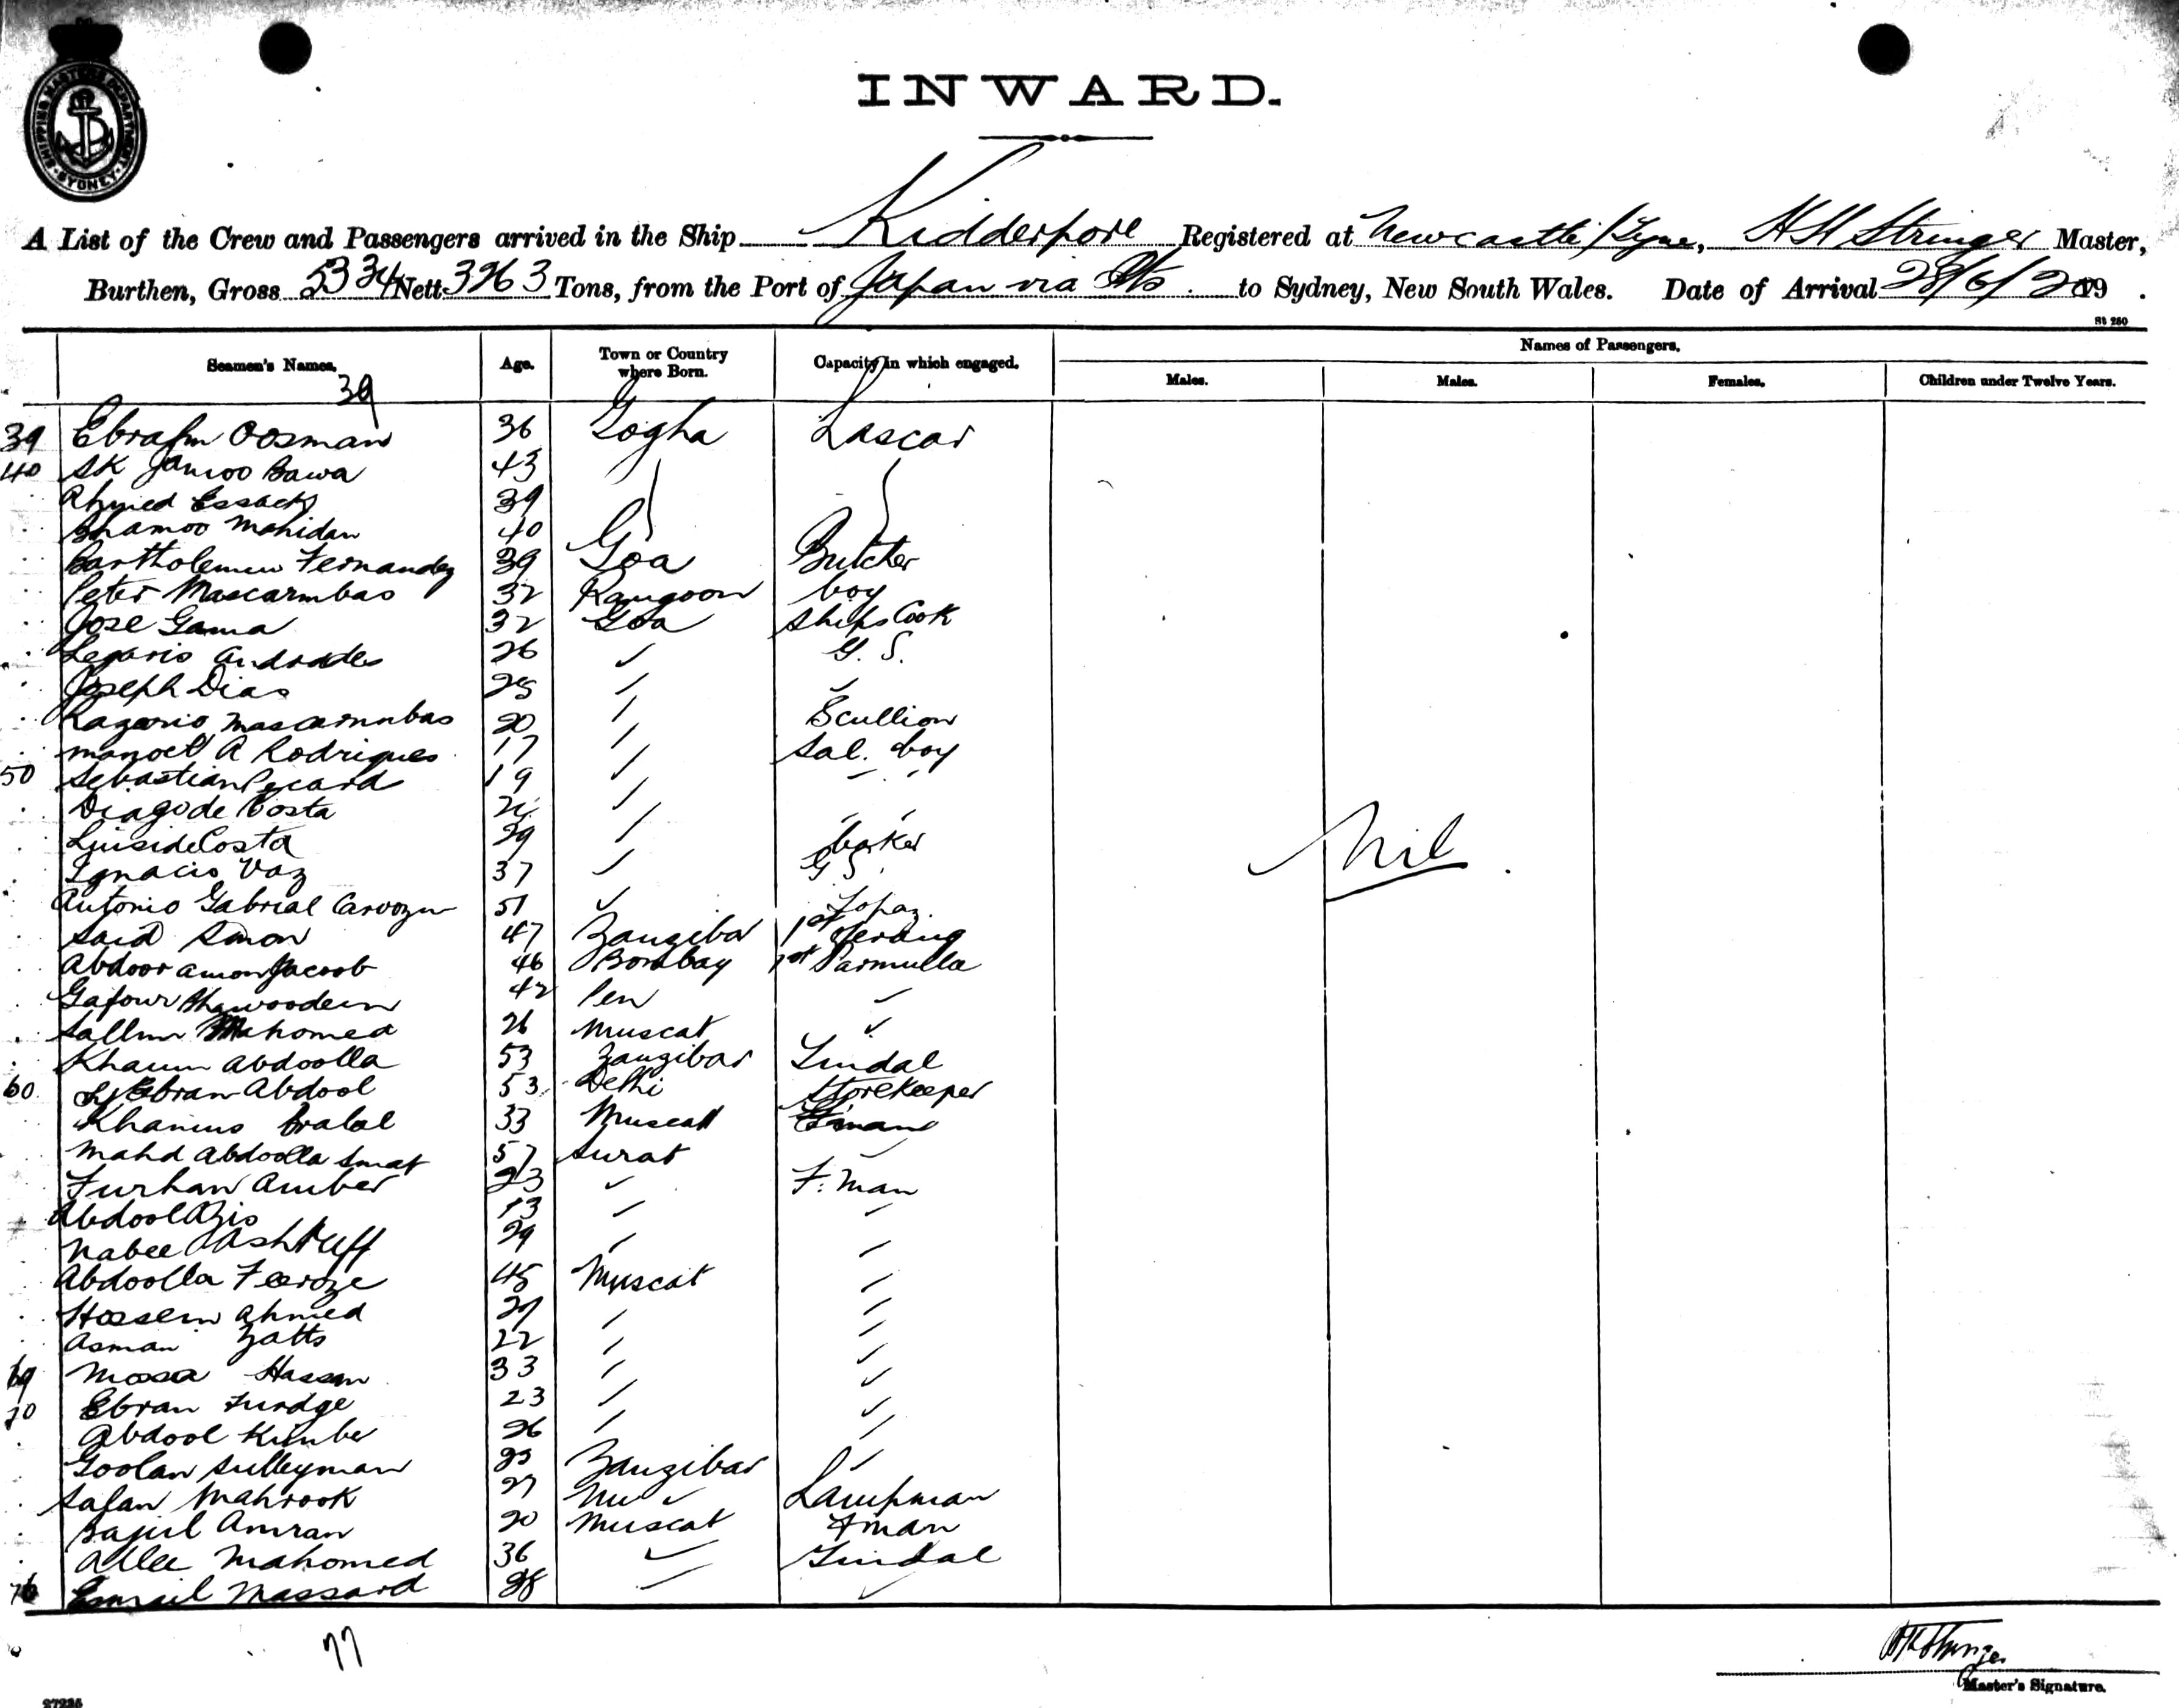 SHIPPING MASTERS DEPARTMENT
SYDNEY
INWARD.
A List of the Crew and Passengers arrived in the Ship Kidderpore Registered at Newcastle/Tyne, HH Stringer Master,
Burthen, Gross 5334 Nett 3263 Tons, from the Port of Japan via Pts. to Sydney, New South Wales. Date of Arrival 28/6/20 19 .
St 260
Seamen's Names. Age. Town or Country where Born. Capacity in which engaged. Names of Passengers.
Males. Males. Females. Children under Twelve Years.
39
39 Ebrahm Oosman 36 Gogha Lascar
40 SK Jamoo Bawa 43
Ahmed Essack 39
Bhamoo Mahidan 40
Bartholemew Fernandez 39 Goa Butcher
Peter Mascarmbas 32 Rangoon boy
Jose Gama 32 Goa Ships Cook
Legario Andrades 26 " G. S.
Joseph Dias 25 " "
Lazario Mascarmbas 20 " Scullion
Manoel A Rodrigues 17 " Sal. boy
50 Sebastian Pecard 19 " " "
Diago de Costa " " "
Luiside Costa 29 " baker
Ignacio Vaz 37 " G S.
Antonio Gabrial 51 " Topaz.
Said Amon 47 Zanzibar 1st Serang
Abdoor amon Yacoob 46 Bombay 1st Parmulla
Gafour 42 Pen "
Sallim Mahomed 26 Muscat "
Khamu Abdoolla 53 Zanzibar Tindal
60. Ebran Abdool 53. Delhi Storekeeper
Khamus 33 Muscat F'man
Mahd Abdoolla Smat 57 Surat "
Furhan Amber 23 " F. man
Abdool Azis 13 " "
Nabee Ashruff 29 " "
Abdoolla Feroze 45 Muscat "
Hossein Ahmed 27 " "
Asman Zatts 22 " "
69 Moosa Hassan 33 " "
70 Ebran Furdge 23 " "
Abdool Kimber 26 " "
Goolan Sulleyman 23 Zanzibar "
Safan Mahrook 27 " Lampman
Bajul Amran 20 Muscat Fman
Allee Mahomed 36 " Tindal
76 Esmail Massard 28 " "
Nil
77
HH Stringer
Master's Signature.
27235